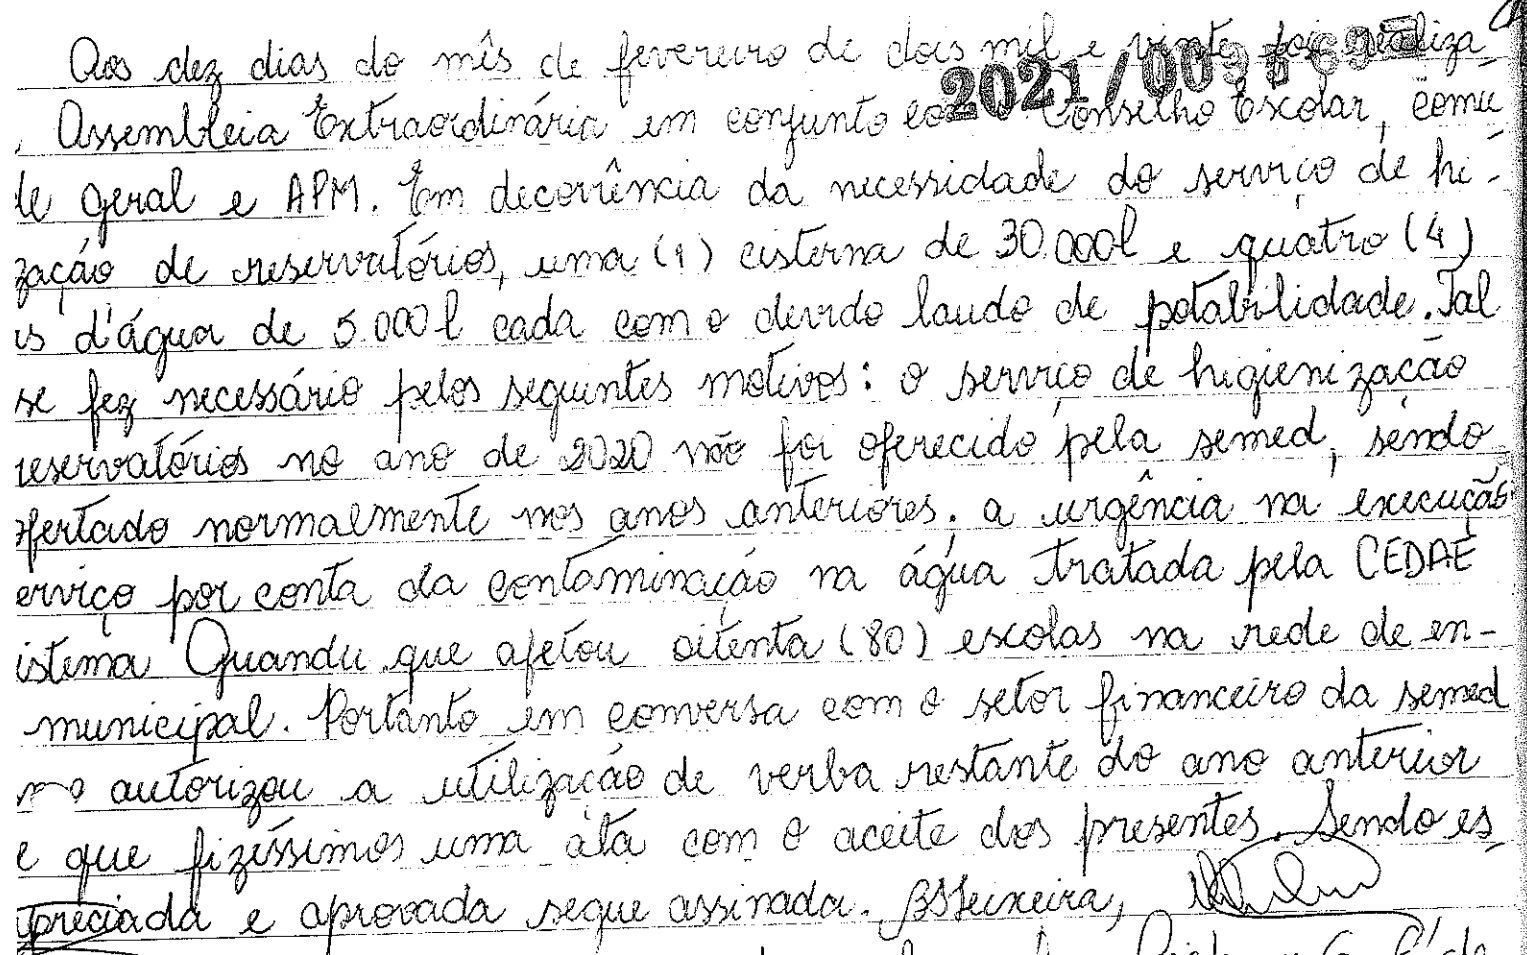 Aos dez dias do mês de fevereiro de dois mil e vinte foi realiza
2021/00
, Assembleia Extraordinária em conjunto com o Conselho Escolar, comu
de geral e APM. Em decorrência da necessidade do serviço de hi-
zação de reservatórios, uma (1) cisterna de 30.000l e quatro (4)
is d'água de 5.000l cada com o devido laudo de potabilidade. Tal
se fez necessário pelos seguintes motivos: o serviço de higienização
reservatórios no ano de 2020 não foi oferecido pela semed, sendo
ofertado normalmente nos anos anteriores; a urgência na execução
erviço por conta da contaminação na água tratada pela CEDAE
istema Quandu que afetou oitenta (80) escolas na rede de en-
municipal. Portanto em conversa com o setor financeiro da semed
autorizou a utilização de verba restante do ano anterior
e que fizéssimos uma ata com o aceite dos presentes. Sendo es
apreciada e aprovada segue assinada. BSTeixeira,